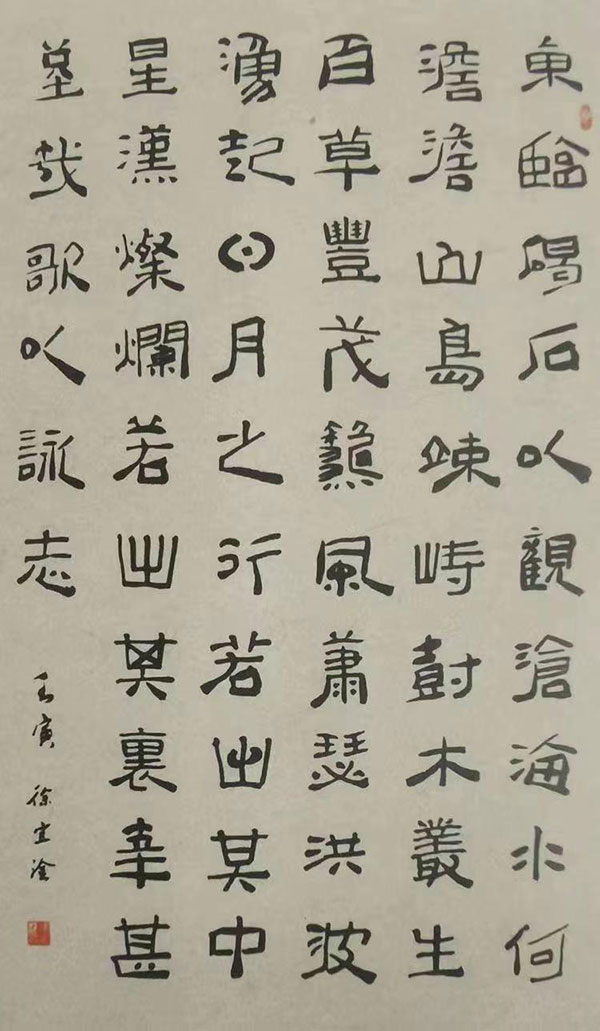 東臨碣石以觀滄海水何
澹澹山島竦峙樹木叢生
百草豐茂秋風蕭瑟洪波
湧起日月之行若出其中
星漢燦爛若出其裏幸甚
至哉歌以詠志
壬寅 徐宜淦